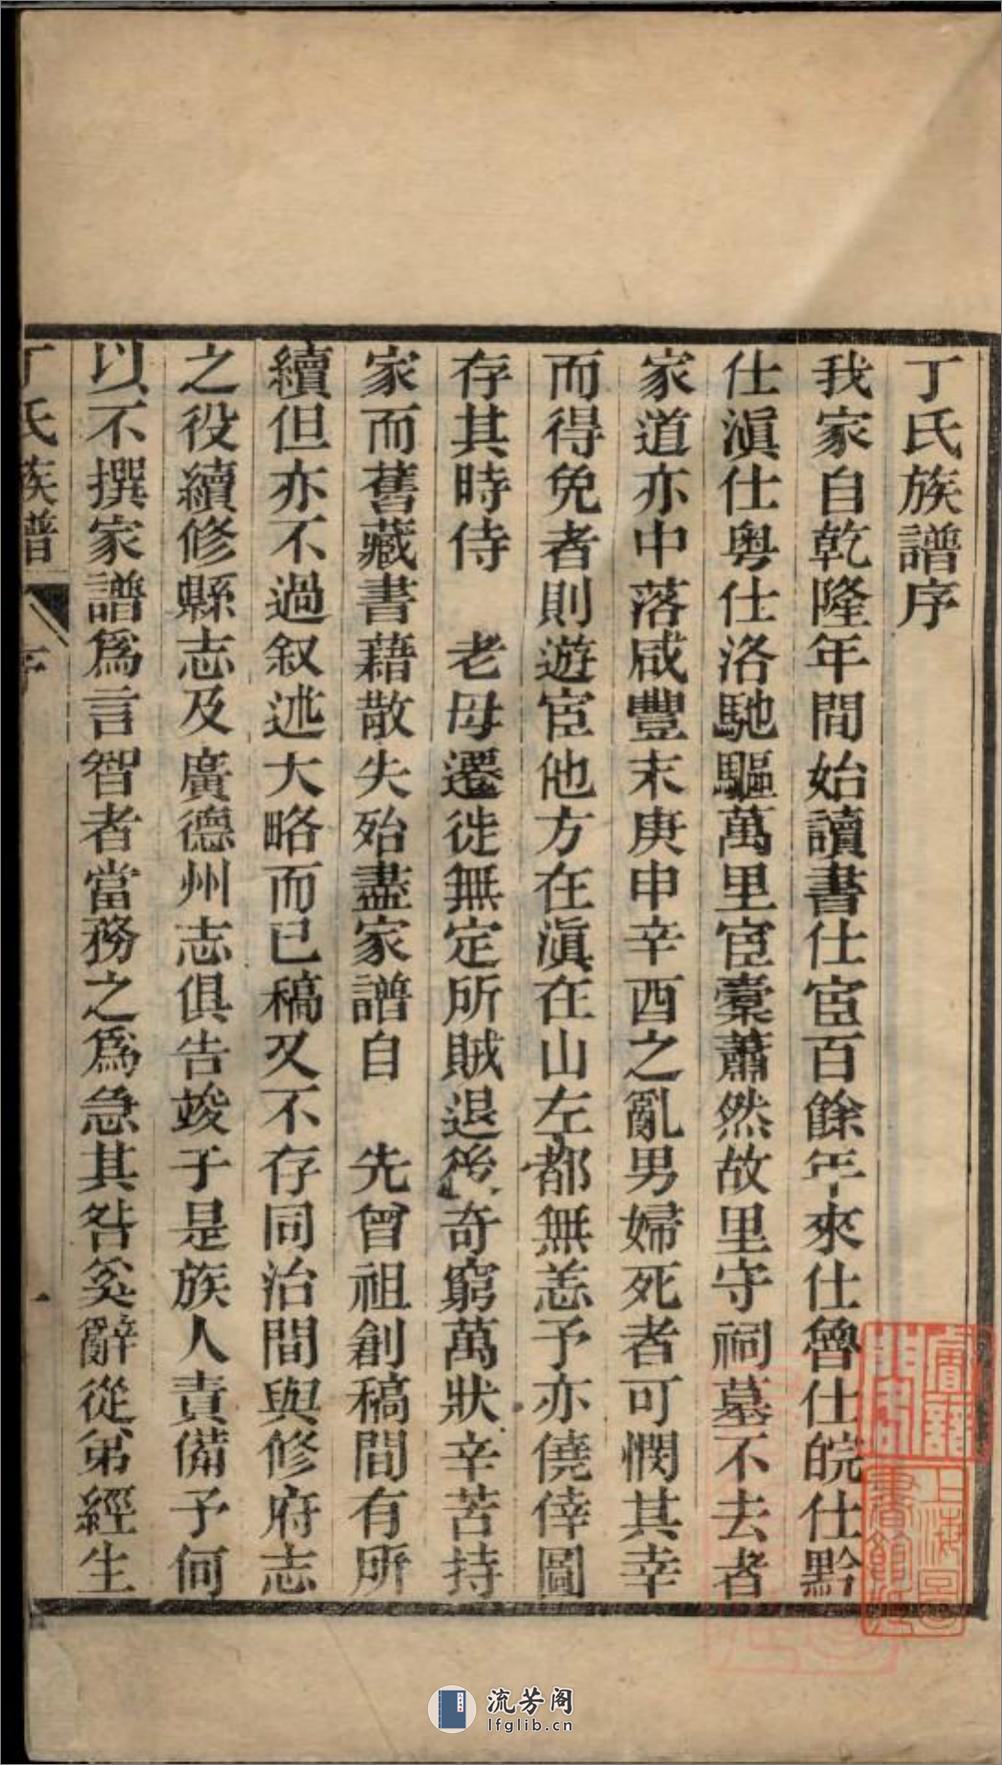 丁氏族譜序
我家自乾隆年間始讀書仕宦百餘年來仕魯仕皖仕黔
仕滇仕粤仕洛馳驅萬里宦橐蕭然故里守祠墓不去者
家道亦中落咸豐末庚申辛酉之亂男婦死者可憫其幸
而得免者則遊宦他方在滇在山左都無恙予亦僥倖圖
存其時侍　老母遷徙無定所賊退後奇窮萬狀辛苦持
家而舊藏書藉散失殆盡家譜自　先曾祖創稿間有所
續但亦不過叙述大略而已稿又不存同治間與修府志
之役續修縣志及廣德州志俱告竣于是族人責備予何
以不撰家譜爲言智者當務之爲急其咎奚辭從弟經生
丁氏族譜
序
一
上海圖書館藏
流芳阁
lfglib.cn